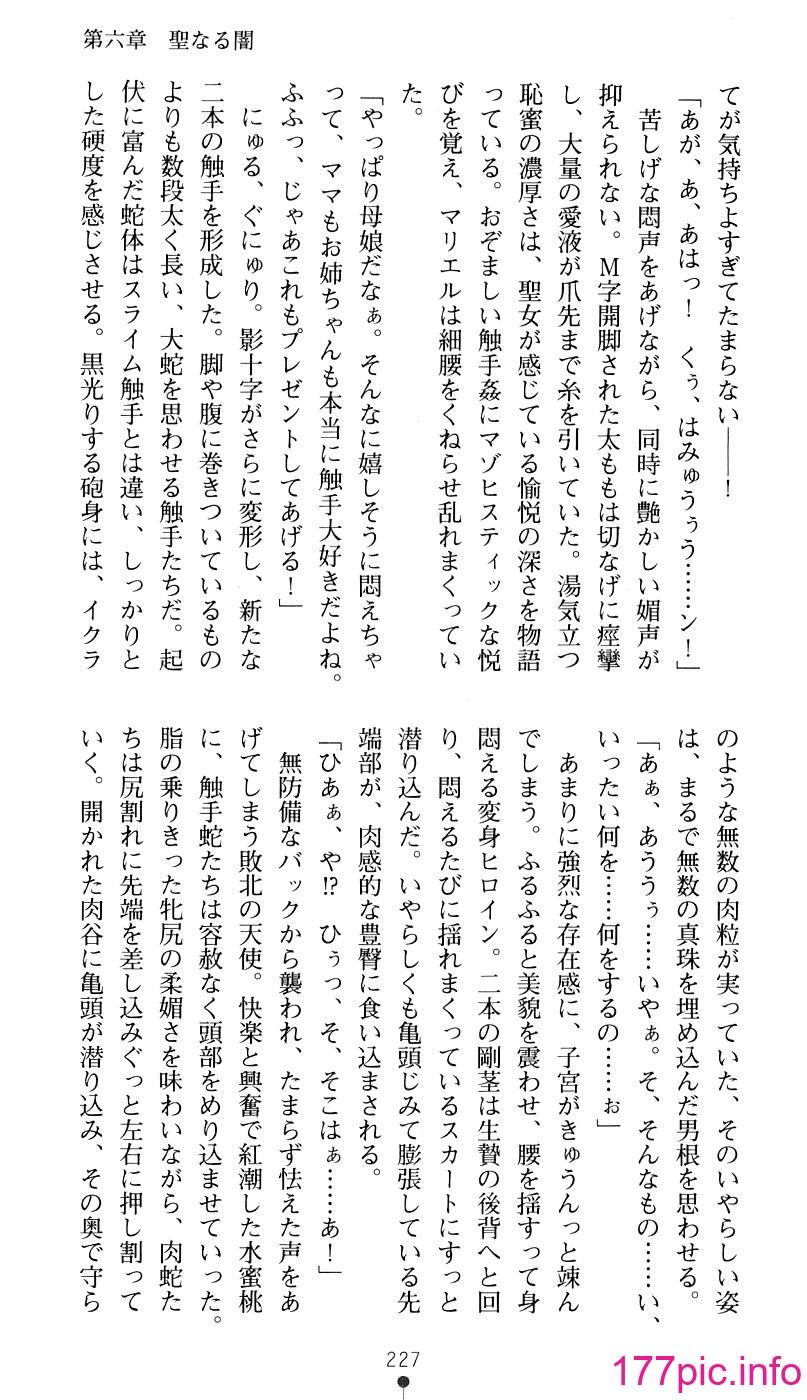 第六章　聖なる闇
てが気持ちよすぎてたまらない――！
「あが、あ、あはっ！　くぅ、はみゅうぅう……ン！」
苦しげな悶声をあげながら、同時に艶かしい媚声が
抑えられない。Ｍ字開脚された太ももは切なげに痙攣
し、大量の愛液が爪先まで糸を引いていた。湯気立つ
恥蜜の濃厚さは、聖女が感じている愉悦の深さを物語
っている。おぞましい触手姦にマゾヒスティックな悦
びを覚え、マリエルは細腰をくねらせ乱れまくってい
た。
「やっぱり母娘だなぁ。そんなに嬉しそうに悶えちゃ
って、ママもお姉ちゃんも本当に触手大好きだよね。
ふふっ、じゃあこれもプレゼントしてあげる！」
にゅる、ぐにゅり。影十字がさらに変形し、新たな
二本の触手を形成した。脚や腹に巻きついているもの
よりも数段太く長い、大蛇を思わせる触手たちだ。起
伏に富んだ蛇体はスライム触手とは違い、しっかりと
した硬度を感じさせる。黒光りする砲身には、イクラ
のような無数の肉粒が実っていた、そのいやらしい姿
は、まるで無数の真珠を埋め込んだ男根を思わせる。
「あぁ、あううぅ……いやぁ。そ、そんなもの……い、
いったい何を……何をするの……ぉ」
あまりに強烈な存在感に、子宮がきゅうんっと竦ん
でしまう。ふるふると美貌を震わせ、腰を揺すって身
悶える変身ヒロイン。二本の剛茎は生贄の後背へと回
り、悶えるたびに揺れまくっているスカートにすっと
潜り込んだ。いやらしくも亀頭じみて膨張している先
端部が、肉感的な豊臀に食い込まされる。
「ひあぁ、や!?　ひぅっ、そ、そこはぁ……あ！」
無防備なバックから襲われ、たまらず怯えた声をあ
げてしまう敗北の天使。快楽と興奮で紅潮した水蜜桃
に、触手蛇たちは容赦なく頭部をめり込ませていった。
脂の乗りきった牝尻の柔媚さを味わいながら、肉蛇た
ちは尻割れに先端を差し込みぐっと左右に押し割って
いく。開かれた肉谷に亀頭が潜り込み、その奥で守ら
227
177pic.info